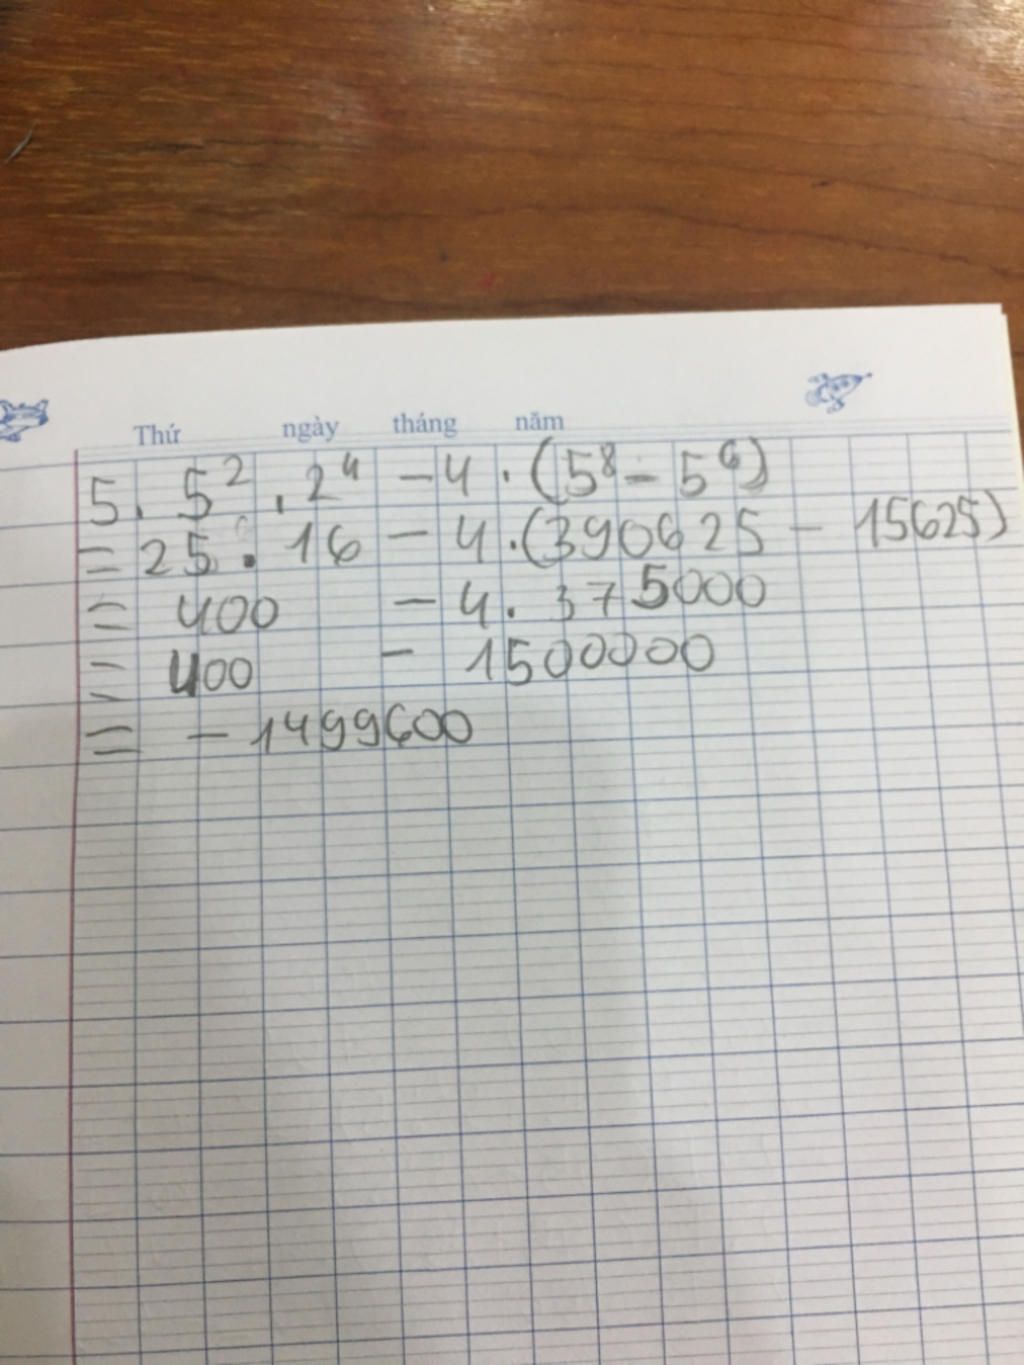 Thứ ngày tháng năm
5. 5² . 2⁴ - 4 . (5⁸ - 5⁶)
= 25 . 16 - 4 . (390625 - 15625)
= 400 - 4 . 375000
= 400 - 1500000
= - 1499600